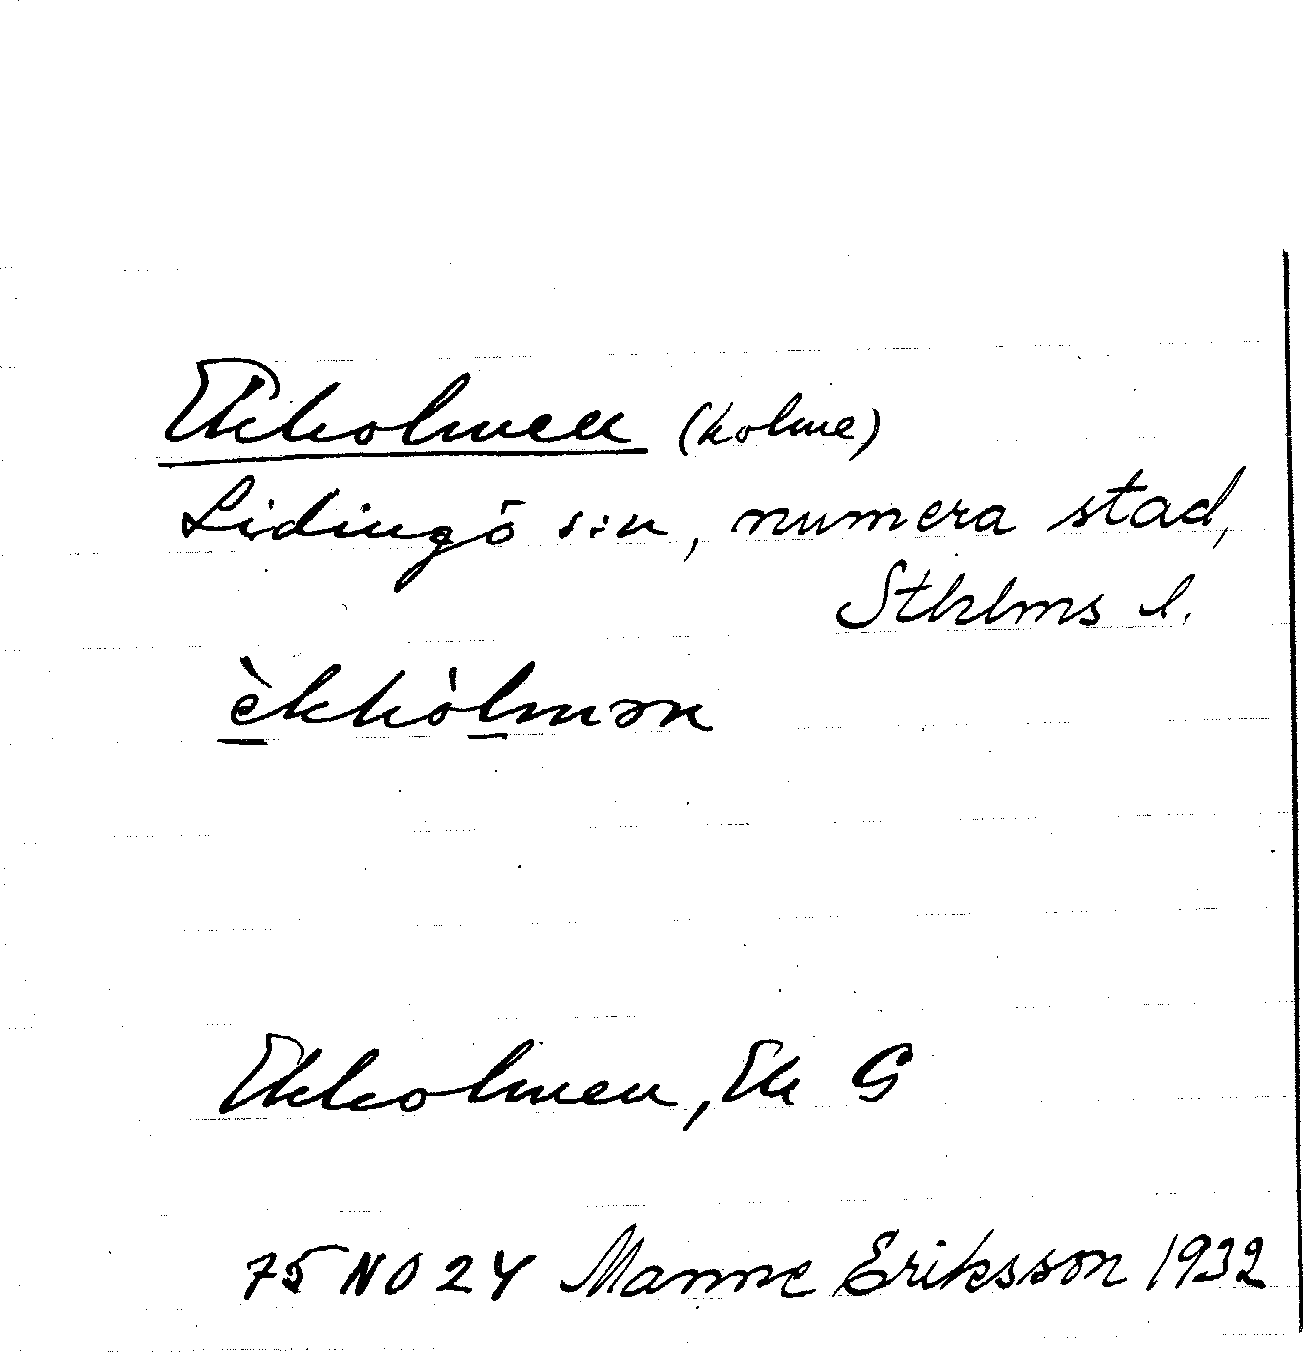 Ekholmen (holme)
Lidingö s:n, numera stad,
Sthlms l.
èkhòlmən
Ekholmen, Ek G
75 NO 24 Manne Eriksson 1932